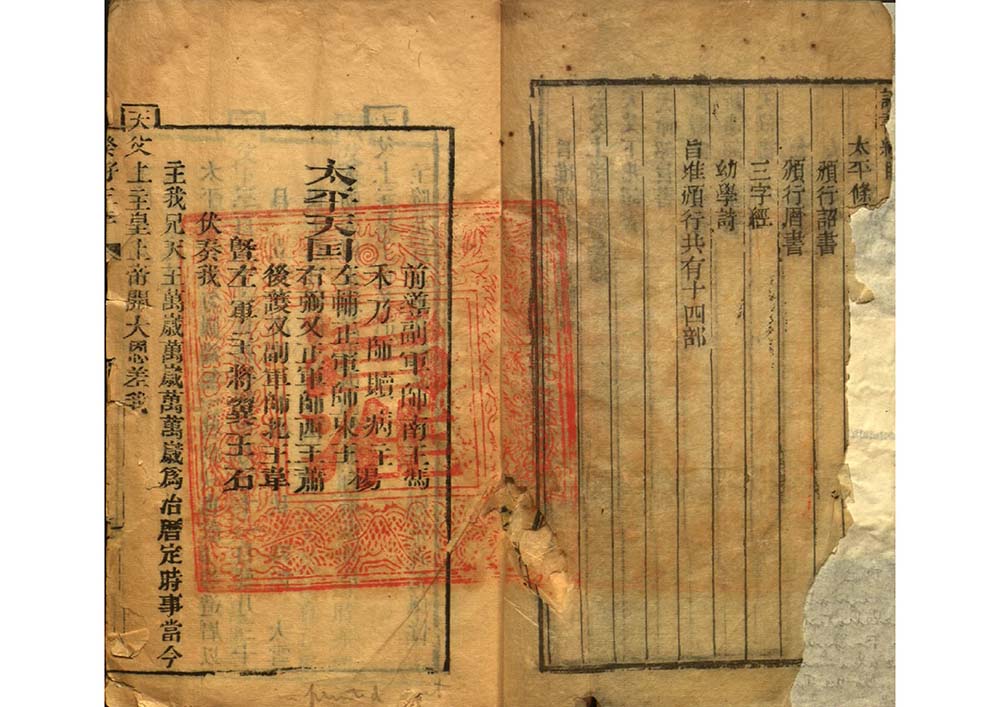 詔書總目
太平條
頒行詔書
頒行曆書
三字經
幼學詩
旨准頒行共有十四部
太平天囯
前導副軍師南王馮
禾乃師贖病主楊
左輔正軍師東王
右弼又正軍師西王蕭
後護又副軍師北王韋
暨左軍主將翼王石
伏奏我
主我兄天王萬歲萬歲萬萬歲爲治曆定時事當今
天父上主皇上帝開大恩差我